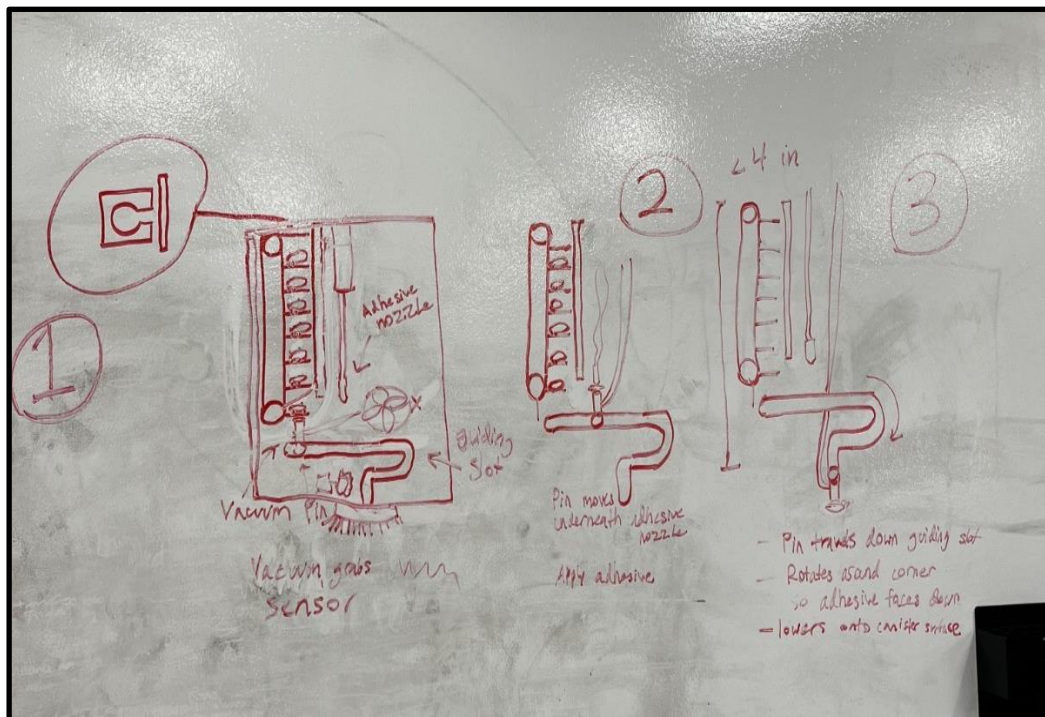 1
Adhesive
nozzle
Guiding
Slot
Vacuum Pin
Vacuum grabs
Sensor
2
Pin moves
underneath adhesive
nozzle
Apply adhesive
<4 in
3
- Pin travels down guiding slot
- Rotates around corner
so adhesive faces down
- lowers onto canister surface